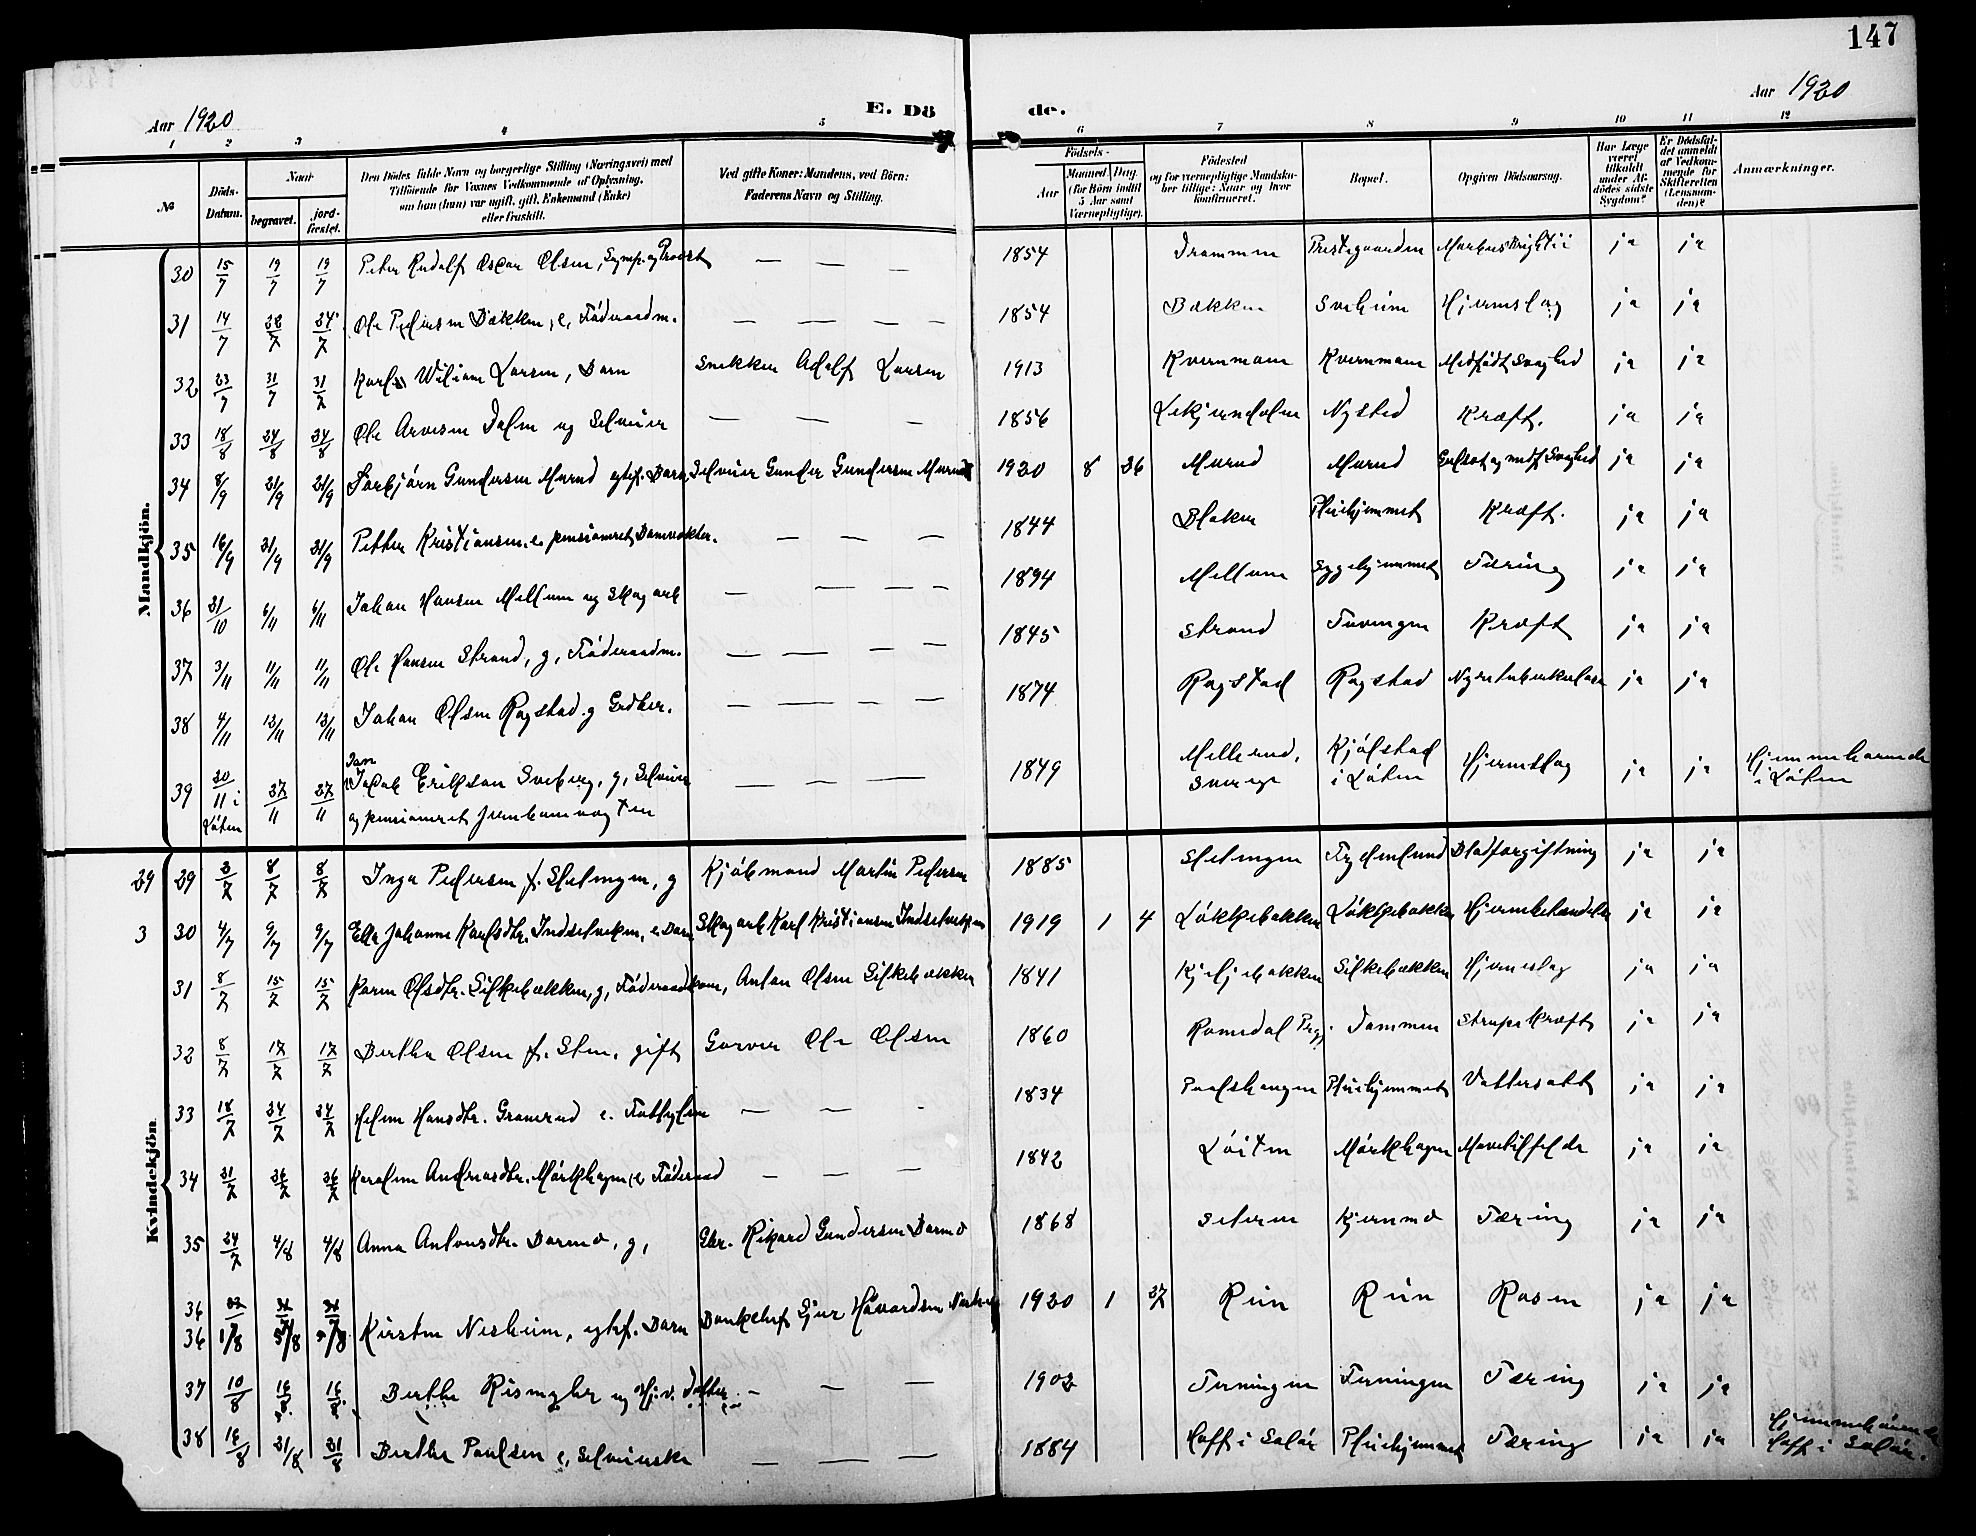 147
Aar 1920
E. Dö
de.
Aar 1920
1 2 3 4 5 6 7 8 9 10 11 12
№
Döds-Datum.
Naar
begravet.
jord-fæstet.
Den Dödes fulde Navn og borgerlige Stilling (Næringsvei) med
Tilföiende for Voxnes Vedkommende af Oplysning,
om han (hun) var ugift, gift, Enkemand (Enke)
eller fraskilt.
Ved gifte Koner: Mandens, ved Börn:
Faderens Navn og Stilling.
Födsels-
Aar
Maaned Dag
(for Börn indtil
5 Aar samt
Værnepligtige).
Födested
og for værnepligtige Mandska-
ber tillige: Naar og hvor
konfirmeret.
Bopæl.
Opgiven Dödsaarsag.
Har Læge
været
tilkaldt
under Af-
dödes sidste
Sygdom?
Er Dödsfal-
det anmeldt
af Vedkom-
mende for
Skifteretten
(Lensman-
den)?
Anmærkninger.
Mandkjön.
30 15/7 19/7 19/7 Peter Rudolf Oscar Olsen, Sognep. og Provst — — — 1854 Drammen Prestegaarden Morbus Brightii ja ja
31 14/7 22/7 24/7 Ole Pedersen Bækken, e, Föderaadm. — — — — 1854 Bækken Sveheim Hjerneslag ja ja
32 23/7 31/7 31/7 Karl Wiliam Larsen, Barn Snekker Adolf Larsen 1913 Kvernmoen Kvernmoen Medfödt Svaghed ja ja
33 18/8 24/8 24/8 Ole Arvesen Dalen ug Selveier — — — 1856 Nysted Kræft. ja ja
34 8/9 21/9 21/9 Torbjörn Gundersen Morud egtef. Barn Selveier Gunder Gundersen Morud 1920 8 26 Morud Morud Gulsot og medf Svaghed ja ja
35 16/9 21/9 21/9 Petter Kristiansen. e. pensioneret Banevokter. — — — 1844 Bloken Pleiehjemmet Kræft. ja ja
36 31/10 6/11 6/11 Johan Hansen Mellum ug Skogarb — — — — 1894 Mellum Sygehjemmet Tæring ja ja
37 3/11 11/11 11/11 Ole Hansen Strand, g, Föderaadm. — — — — 1845 Strand Tuvengen Kræft ja ja
38 4/11 13/11 13/11 Johan Olsen Rogstad. g Grdbr. — — — — 1874 Rogstad Rogstad Nyretuberkulose ja ja
39 20/11 i Löten 27/11 27/11 Jan
Jakob Erikson Sveberg, g, Selveier — — — 1849 Mellerud, Kjölstad Hjerneslag ja ja Hjemmehörende
og pensioneret Jernbanevogten Sverige i Löten i Löten
Kvindekjön
29 29 2/7 8/7 8/7 Inga Pedersen f. Sletengen, g Kjöbmand Martin Pedersen 1885 Sletengen Fredenlund Blodforgiftning ja ja
3 30 4/7 9/7 9/7 Ella Johanne Karlsdtr. Indsetveien, e. Barn Skogarb Karl Kristiansen Indsetveien 1919 1 4 Lökkebakken Lökkebakken ja ja
31 8/7 15/7 15/7 Karen Olsdtr. Silkebækken, g, Föderaadkone, Anton Olsen Silkebækken 1841 Silkebækken Hjerneslag ja ja
32 8/7 17/7 17/7 Berthe Olsen f. Sten, gift Garver Ole Olsen 1860 Romedal Prgj. Dammen Strupekræft ja ja
33 18/7 24/7 24/7 Helene Hansdtr. Granerud e. Fattiglem — — 1834 Paalshaugen Pleiehjemmet Vattersott ja ja
34 21/7 26/7 26/7 Karoline Andreasdtr. Mörkhagen, e Föderaad — — — 1842 Löiten Mörkhagen Mavetilfelde ja ja
35 24/7 4/8 4/8 Anna Antonsdtr. Darmo, g, Gbr. Rikard Gundersen Darmo 1868 Seteren Kjernmo Tæring ja ja
36
36 1/8 5/8 5/8 Kirsten Nesheim, egtef. Barn Bankchef Sjur Håvardsen Nesheim 1920 1 27 Rein Rein Rosen ja ja
37 10/8 16/8 16/8 Berthe ug Hj.v. Datter. — — — 1902 Terningen Terningen Tæring ja ja
38 16/8 21/8 21/8 Berthe Paulsen e, Selveierske — — — 1884 Hoff i Solör Pleiehjemmet Tæring ja ja Hjemmehörende
Hoff i Solör.